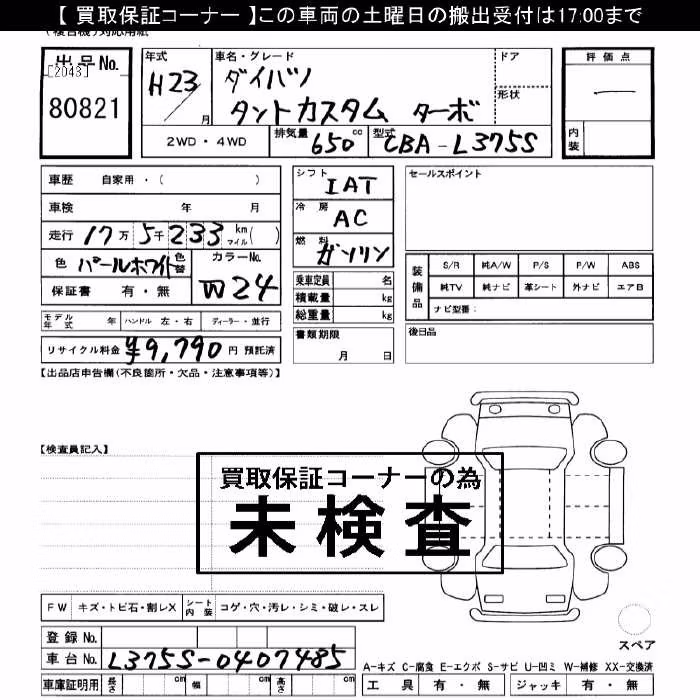 【 買取保証コーナー 】この車両の土曜日の搬出受付は17:00まで
出品No.
[2043]
80821
年式
H23/
月
車名・グレード
ダイハツ
タントカスタム ターボ
ドア
形状
評価点
内装
2WD・4WD
排気量 650 cc
型式 CBA-L375S
車歴 自家用・( )
車検 年 月
走行 17万5千233 km マイル ( )
色 パールホワイト 色替
カラーNo.
W24
保証書 有・無
シフト IAT
冷房 AC
燃料 ガソリン
乗車定員 名
積載量 kg
総重量 kg
セールスポイント
装備品
S/R 純A/W P/S P/W ABS
純TV 純ナビ 革シート 外ナビ エアB
ナビ型番:
モデル年式 年 ハンドル 左・右 ディーラー・並行
リサイクル料金 ¥9,790 円 預託済
書類期限
月 日
後日品
【出品店申告欄(不良箇所・欠品・注意事項等)】
【検査員記入】
買取保証コーナーの為
未検査
FW キズ・トビ石・割レX
シート内装 コゲ・穴・汚レ・シミ・破レ・スレ
スペア
登録No.
車台No. L375S-0407485
A-キズ C-腐食 E-エクボ S-サビ U-凹ミ W-補修 XX-交換済
車庫証明用 長さ cm 幅 cm 高さ cm
工具 有・無 ジャッキ 有・無